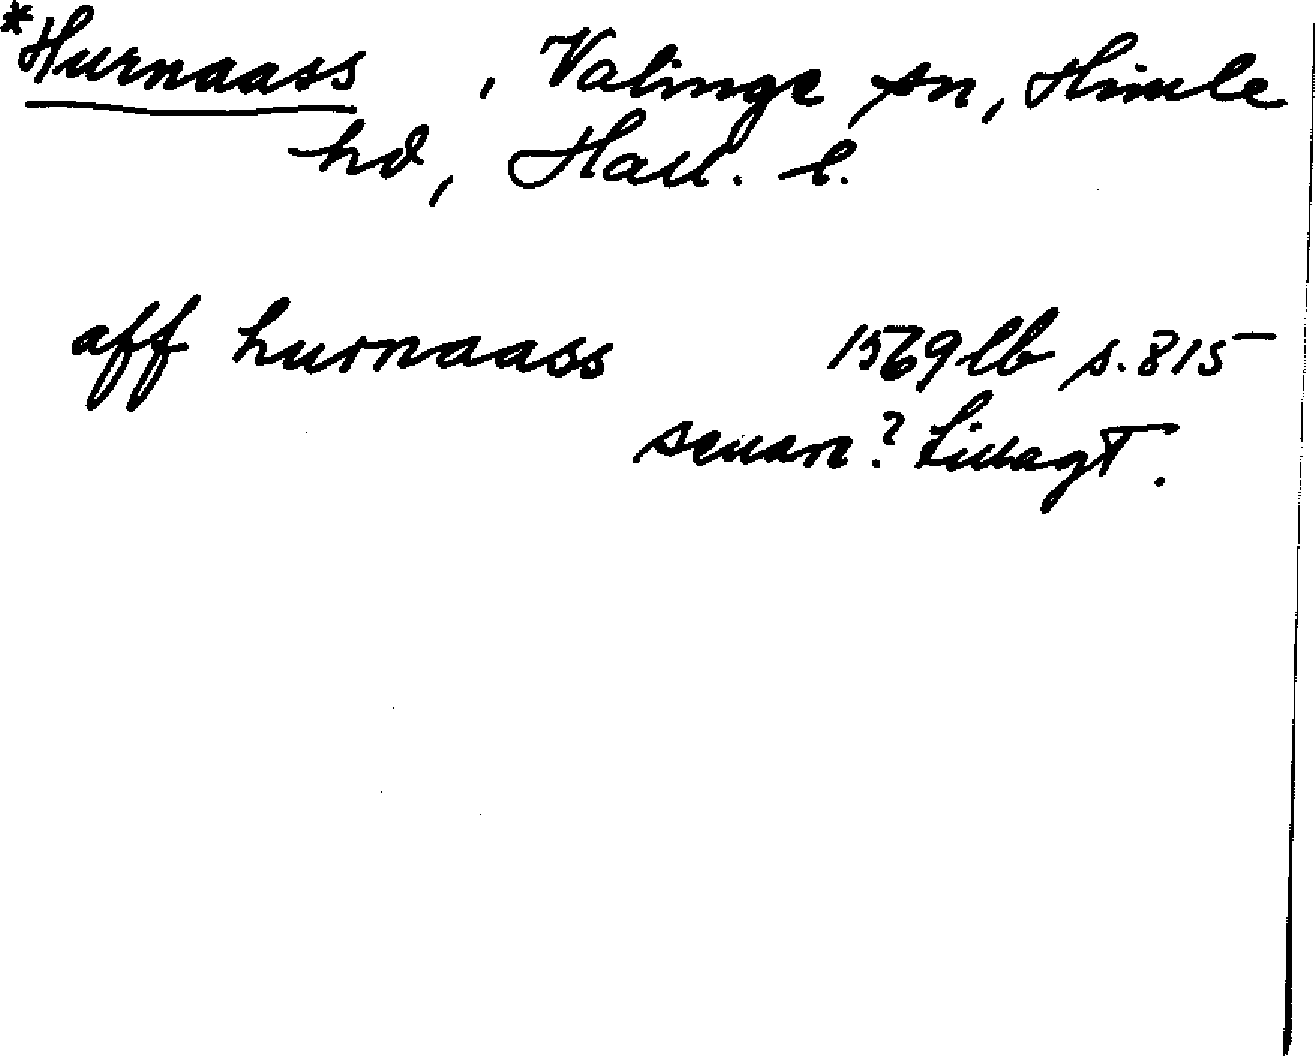 *Hurnaass , Valinge sn, Himle
hd, Hall. l.
aff hurnaass 1569 lb s. 815
senare? tillagt.